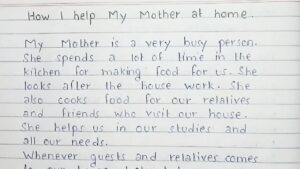 How I help My Mother at home.
My Mother is a very busy person.
She spends a lot of time in the
kitchen for making food for us. She
looks after the house work. She
also cooks food for our relatives
and friends who visit our house.
She helps us in our studies and
all our needs.
Whenever guests and relatives comes